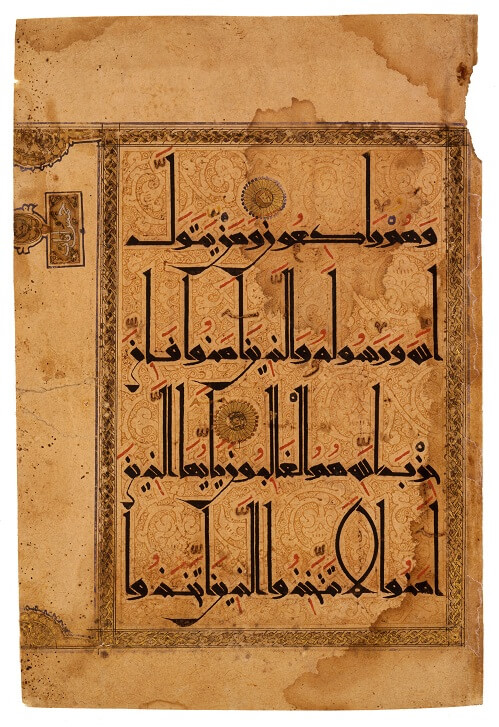 وَهُمْ رَاكِعُونَ وَمَنْ يَتَوَلَّ
اللّٰهَ وَرَسُولَهُ وَالَّذِينَ اٰمَنُوا فَاِنَّ
حِزْبَ اللّٰهِ هُمُ الْغَالِبُونَ يٰاَيُّهَا الَّذِينَ
اٰمَنُوا لَا تَتَّخِذُوا الَّذِينَ اتَّخَذُوا